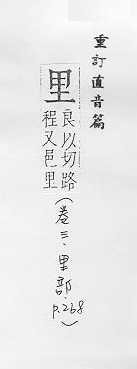 重訂直音篇
里
良以切路
程又邑里
(卷三·里部·
p.268)